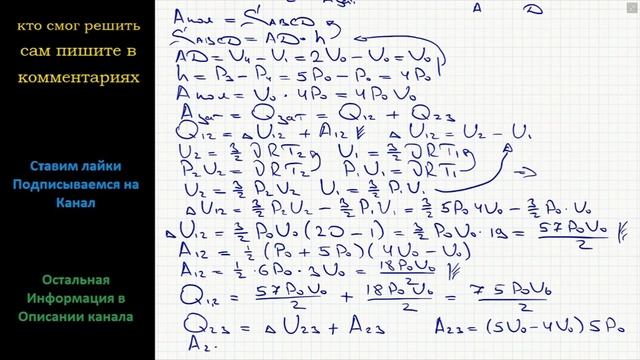 кто смог решить
сам пишите в
комментариях
Ставим лайки
Подписываемся на
Канал
Остальная
Информация в
Описании канала
A D
Aпол = S ABCD
S ABCD = AD · h
AD = V4 − V1 = 2V0 − V0 = V0
h = P3 − P4 = 5P0 − P0 = 4P0
Aпол = V0 · 4P0 = 4P0V0
Aзат = Qзат = Q12 + Q23
Q12 = ΔU12 + A12 ΔU12 = U2 − U1
U2 = 3/2 νRT2 U1 = 3/2 νRT1
P2V2 = νRT2 P1V1 = νRT1 →
U2 = 3/2 P2V2 U1 = 3/2 P1V1
ΔU12 = 3/2 P2V2 − 3/2 P1V1 = 3/2 5P0 4V0 − 3/2 P0·V0
ΔU12 = 3/2 P0V0 (20 − 1) = 3/2 P0V0 · 19 = 57P0V0/2
A12 = 1/2 (P0 + 5P0)(4V0 − V0)
A12 = 1/2 · 6P0 · 3V0 = 18P0V0/2
Q12 = 57P0V0/2 + 18P0V0/2 = 75P0V0/2
Q23 = ΔU23 + A23 A23 = (5V0 − 4V0) 5P0
A2